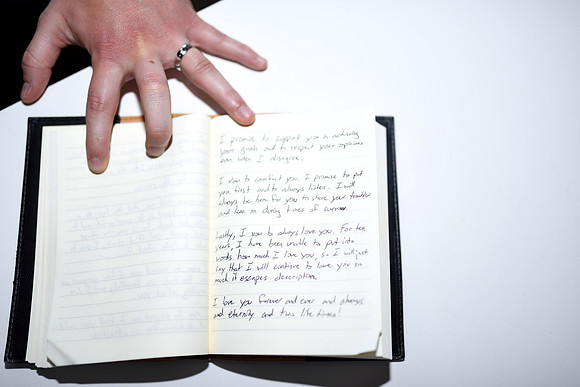 I promise to support you in achieving
your goals and to respect your opinions
even when I disagree.
I vow to comfort you. I promise to put
you first and to always listen. I will
always be here for you to share your troubles
and lean on during times of sorrow.
Lastly, I vow to always love you. For ten
years, I have been unable to put into
words how much I love you, so I will just
say that I will continue to love you so
much it escapes description.
I love you forever and ever and always
and eternity and two life times!